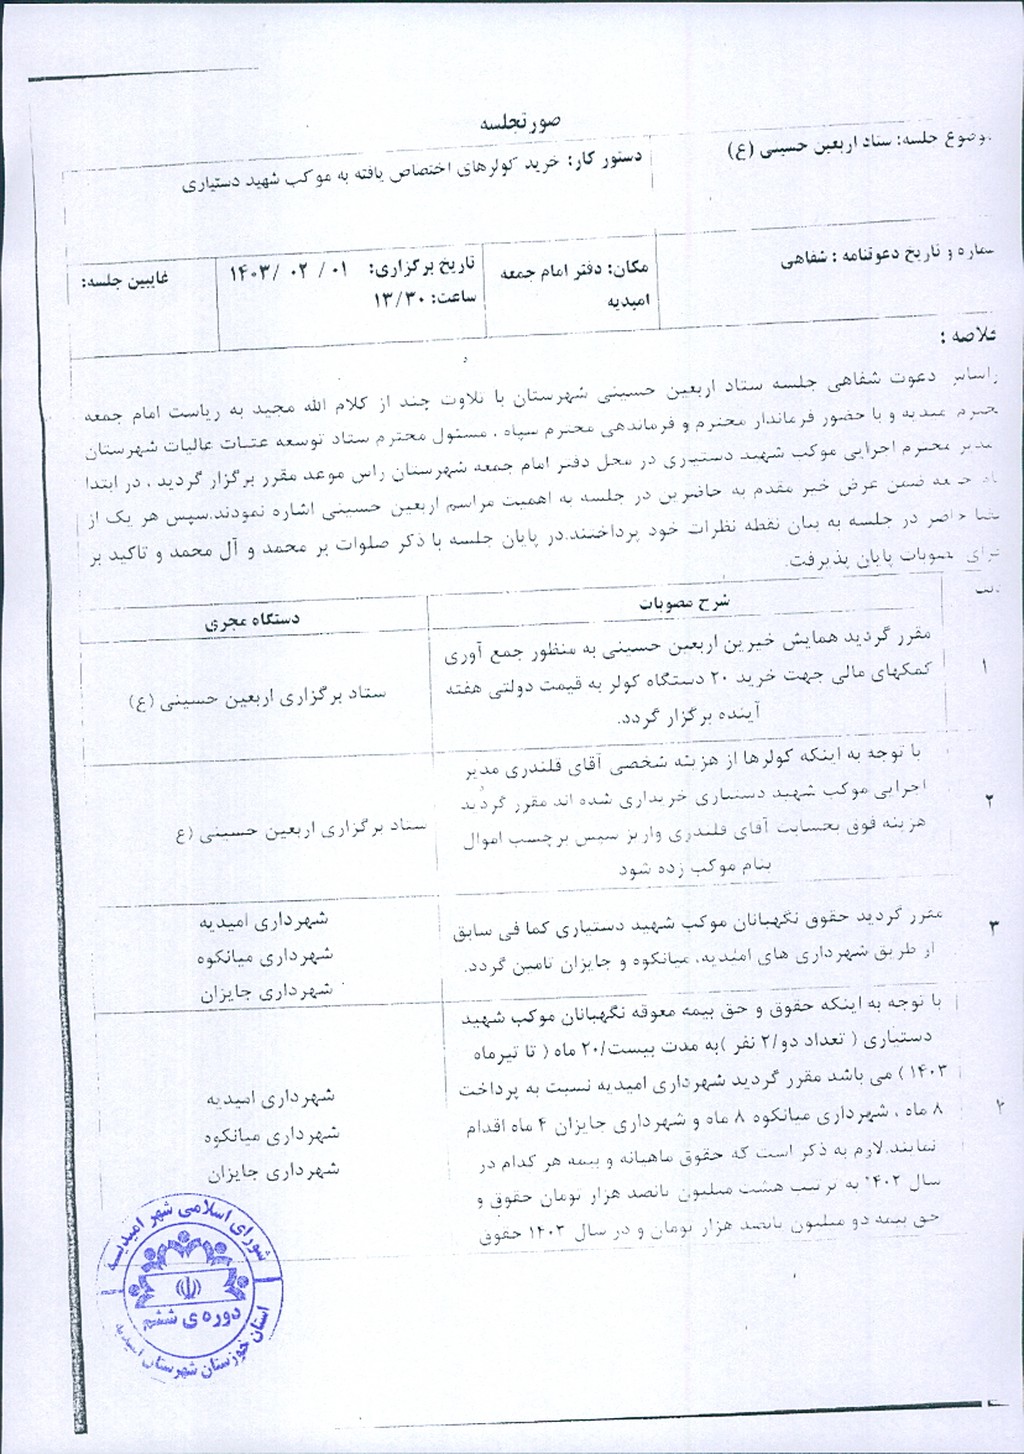 صورتجلسه
موضوع جلسه: ستاد اربعین حسینی (ع)
دستور کار: خرید کولرهای اختصاص یافته به موکب شهید دستیاری
شماره و تاریخ دعوتنامه : شفاهی
مکان: دفتر امام جمعه
امیدیه
تاریخ برگزاری: ۰۱ / ۰۲ /۱۴۰۳
ساعت: ۱۳/۳۰
غایبین جلسه:
خلاصه :
براساس دعوت شفاهی جلسه ستاد اربعین حسینی شهرستان با تلاوت چند از کلام الله مجید به ریاست امام جمعه
محترم امیدیه و با حضور فرماندار محترم و فرماندهی محترم سپاه ، مسئول محترم ستاد توسعه عتبات عالیات شهرستان
مدیر محترم اجرایی موکب شهید دستیاری در محل دفتر امام جمعه شهرستان راس موعد مقرر برگزار گردید ، در ابتدا
امام جمعه ضمن عرض خیر مقدم به حاضرین در جلسه به اهمیت مراسم اربعین حسینی اشاره نمودند.سپس هر یک از
اعضا حاضر در جلسه به بیان نقطه نظرات خود پرداختند.در پایان جلسه با ذکر صلوات بر محمد و آل محمد و تاکید بر
اجرای مصوبات پایان پذیرفت.
شرح مصوبات
دستگاه مجری
۱
مقرر گردید همایش خیرین اربعین حسینی به منظور جمع آوری
کمکهای مالی جهت خرید ۲۰ دستگاه کولر به قیمت دولتی هفته
آینده برگزار گردد.
ستاد برگزاری اربعین حسینی (ع)
۲
با توجه به اینکه کولرها از هزینه شخصی آقای قلندری مدیر
اجرایی موکب شهید دستیاری خریداری شده اند مقرر گردید
هزینه فوق بحسابت آقای قلندری واریز سپس برچسب اموال
بنام موکب زده شود
ستاد برگزاری اربعین حسینی (ع
۳
مقرر گردید حقوق نگهبانان موکب شهید دستیاری کما فی سابق
از طریق شهرداری های امیدیه، میانکوه و جایزان تامین گردد.
شهرداری امیدیه
شهرداری میانکوه
شهرداری جایزان
۴
با توجه به اینکه حقوق و حق بیمه معوقه نگهبانان موکب شهید
دستیاری ( تعداد دو/۲ نفر )به مدت بیست/۲۰ ماه ( تا تیرماه
۱۴۰۳ ) می باشد مقرر گردید شهرداری امیدیه نسبت به پرداخت
۸ ماه ، شهرداری میانکوه ۸ ماه و شهرداری جایزان ۴ ماه اقدام
نمایند.لازم به ذکر است که حقوق ماهیانه و بیمه هر کدام در
سال ۱۴۰۲ به ترتیب هشت میلیون پانصد هزار تومان حقوق و
حق بیمه دو میلیون پانصد هزار تومان و در سال ۱۴۰۳ حقوق
شهرداری امیدیه
شهرداری میانکوه
شهرداری جایزان
شورای اسلامی شهر امیدیه
دوره ی ششم
استان خوزستان شهرستان امیدیه